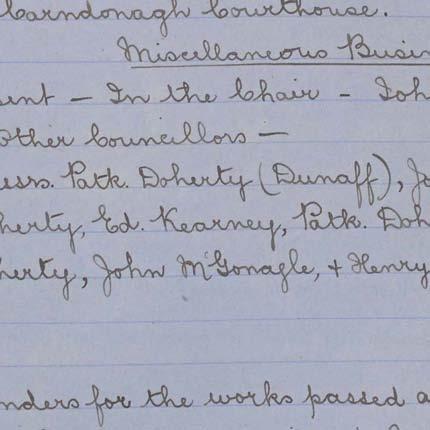 Carndonagh Courthouse.
Miscellaneous Busin
sent – In the Chair – Joh
other Councillors –
essrs. Patk. Doherty (Dunaff), Jo
herty, Ed. Kearney, Patk. Doh
herty, John McGonagle, & Henry
nders for the works passed a